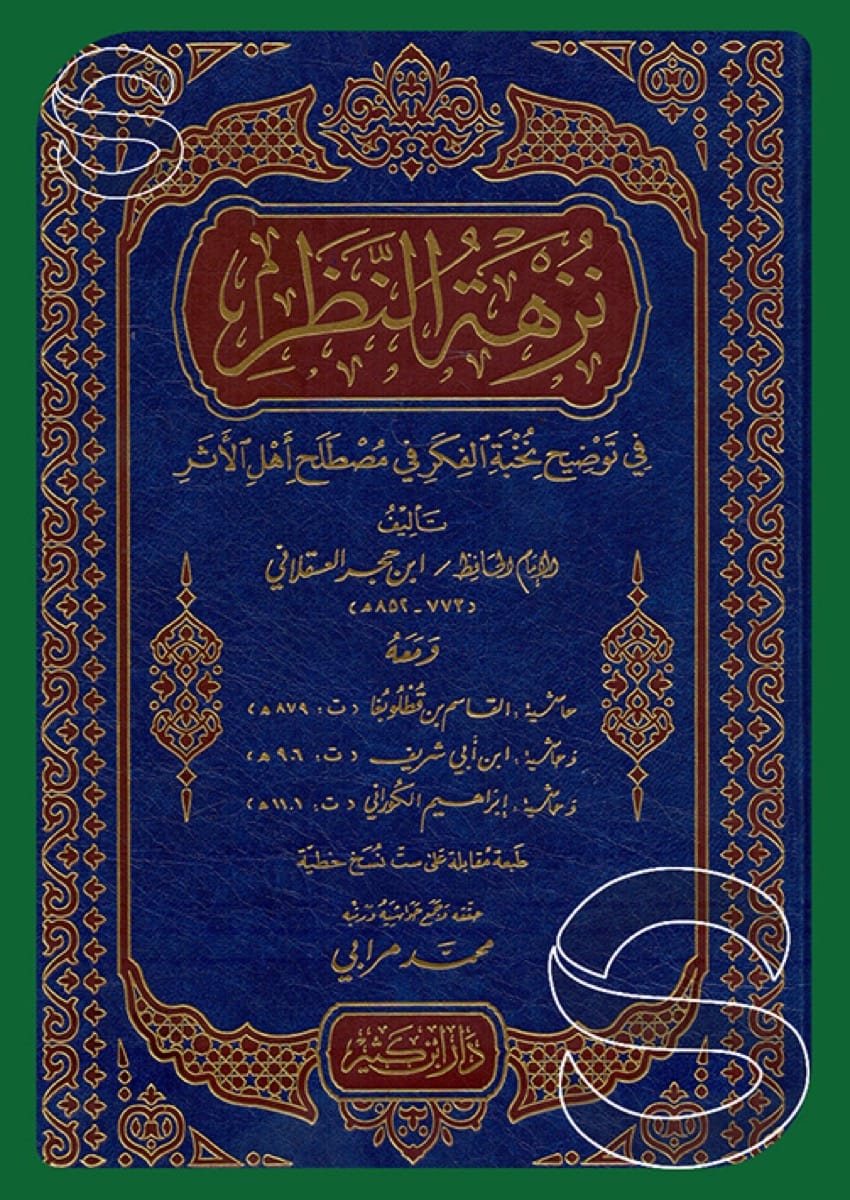 نُزْهَةُ النَّظَرِ
فِي تَوْضِيحِ نُخْبَةِ الفِكَرِ فِي مُصْطَلَحِ أَهْلِ الأَثَرِ
تَأْلِيفُ
الإمام الحافظ / ابن حجر العسقلاني
(٧٧٣ - ٨٥٢ هـ)
وَمَعَهُ
حاشية : القاسم بن قُطْلُوبُغَا (ت : ٨٧٩ هـ)
وحاشية : ابن أبي شريف (ت : ٩٠٦ هـ)
وحاشية : إبراهيم الكُوراني (ت : ١١٠١ هـ)
طبعة مُقابلة على ست نُسَخ خطية
حققه وجمع حواشيه ورتبه
محمَّد مرابي
دار ابن كثير